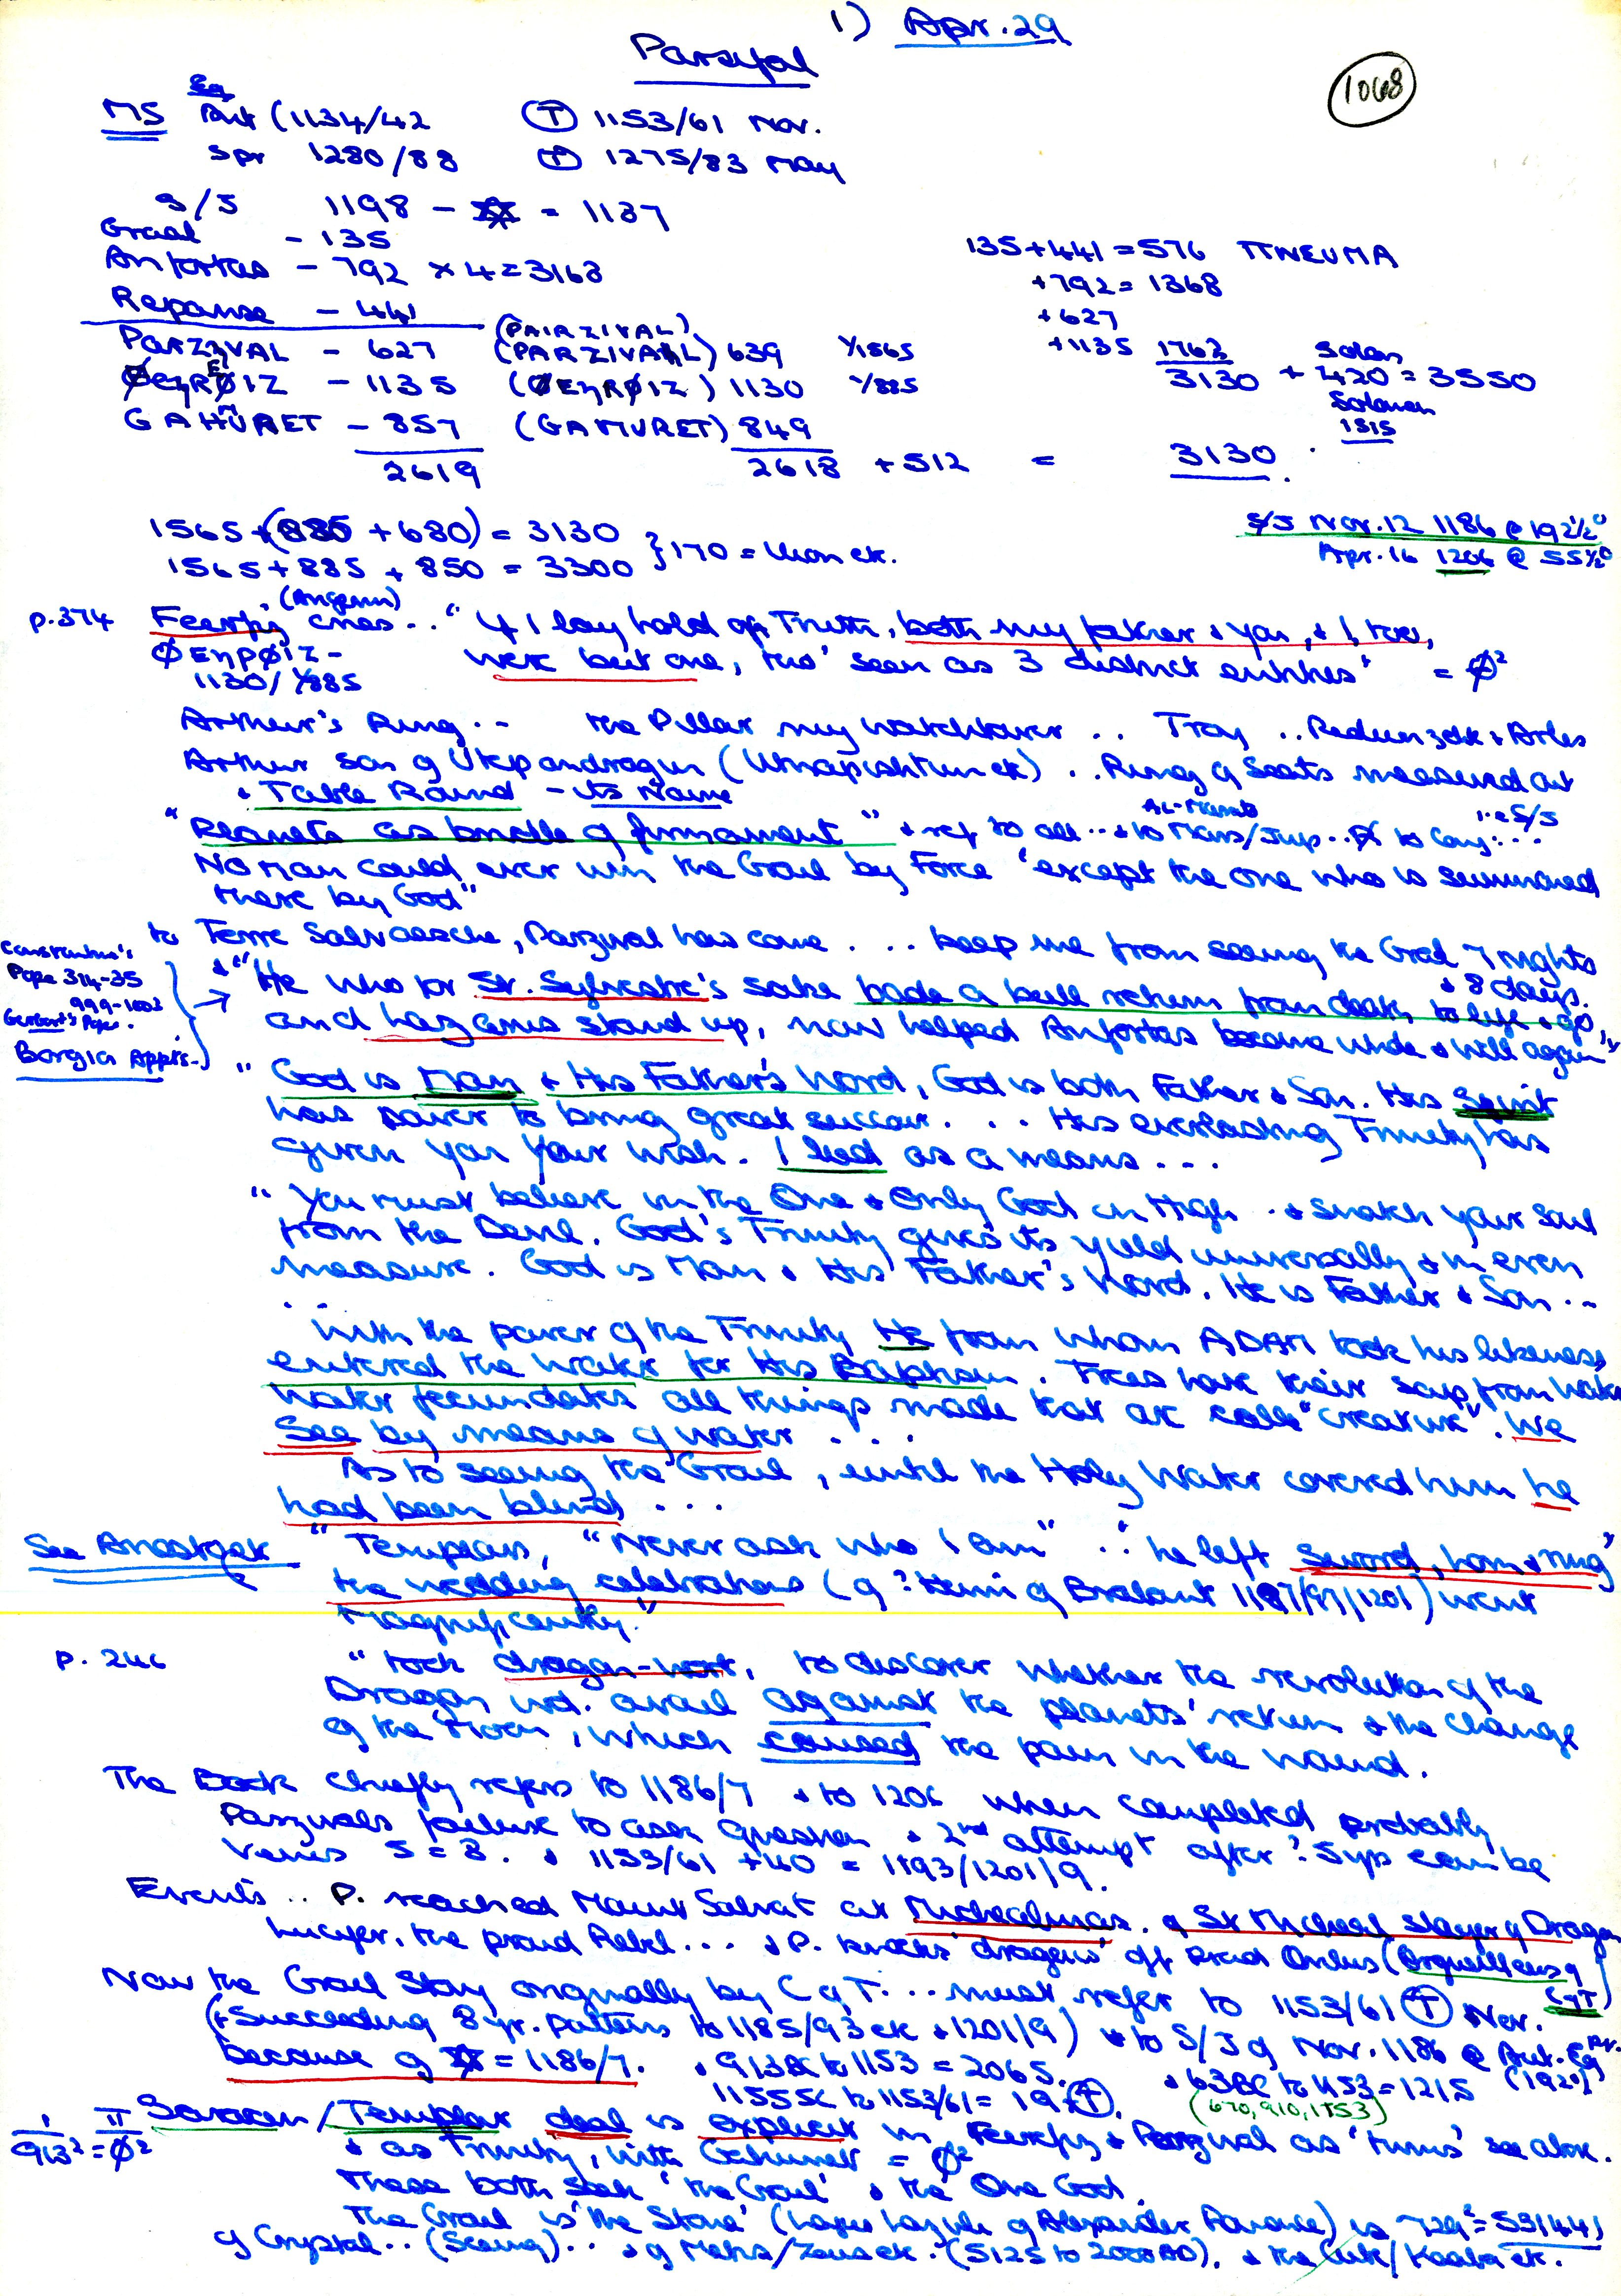 1) Apr. 29
Parsifal
1068
Eq
MS Aut (1134/42 (T) 1153/61 Nov.
Spr 1280/88 (T) 1275/83 May
S/J 1198 - ✡ = 1137
Graal - 135
Anfortas - 792 x 4 = 3168
Repanse - 441
135 + 441 = 576 ΠNEUMA
+792 = 1368
+627
+1135 1762
3130 + 420 = 3550
Solon
Solomon
1515
(PAIRZIVAL)
PARZIVAL - 627 (PARZIVAL) 639 1/1565
- 1135 1130 1/885
GAHMURET - 857 (GAMURET) 849
2619 2618 + 512 = 3130.
1565 + (885 + 680) = 3130
1565 + 885 + 850 = 3300 } 170 =
S/J Nov. 12 1186 @ 192½°
Apr. 16 1206 @ 55½°
(Angevin)
p.374 Feerfiz cries .. "If I lay hold of Truth, both my father & you, & I, too,
were but one, tho' seen as 3 distinct entities" = Ø²
ØEηPØIZ -
1130/ 1/885
Arthur's Ring .. the Pillar my watchtower .. Troy ..
Arthur son of Utepandragun (Utnapishtim etc) .. Ring of Seats measured out
& Table Round - its Name
i.e S/J
"Planets as bridle of firmament" & ref to all .. & to Mars/Jup ..
No man could ever win the Grail by Force 'except the one who is summoned
there by God"
to Terre Salvaesche, Parzival has come . .. keep me from seeing the Grail 7 nights
& 8 days.
Constantine's
Pope 314-35
999-1003
Gerbert's Pope.
Borgia Appts.
& "He who for St. Sylvester's sake bade a bull return from death to life & go,
and Lazarus stand up, now helped Anfortas become whole & well again"
"God is Man & His Father's Word, God is both Father & Son. His Spirit
has power to bring great succour. .. His everlasting Trinity has
given you your wish. I lied as a means ...
"You must believe in the One & Only God on High .. & snatch your soul
from the Devil. God's Trinity gives its yield universally & in even
measure. God is Man & His Father's Word. He is Father & Son ..
..
With the power of the Trinity He from whom ADAM took his likeness
entered the water for His Baptism. Trees have their sap from Water
Water fecundates all things made that are called "creature". We
See by means of water . . .
As to seeing the Grail, until the Holy Water covered him he
had been blind ...
"Templars, "Never ask who I am" .. he left sword, horn & ring"
the wedding celebrations (of ? Henri of Brabant 1187/97/1201) went
magnificently."
p. 246 "took dragon-wort, to discover whether the revolution of the
Dragon wd. avail against the planets' return & the change
of the Moon, which caused the pain in the wound.
The Book chiefly refers to 1186/7 & to 1206 when completed probably
Parzivals failure to ask question & 2nd attempt after ? 5yrs can be
Venus 5 = 8. & 1153/61 + 40 = 1193/1201/9.
Events .. P. reached Mount Salvat at Michaelmas. of St Michael slayer of Dragon
Lucifer, the proud Rebel ... & P. knocks 'dragons' off Proud Orilus (Orguilleus of
CofT)
Now the Grail Story originally by C of T. .. must refer to 1153/61 (T) Nov.
(& Succeeding 8 yr. pattern to 1185/93 etc & 1201/9) & to S/J of Nov. 1186 @ Aut. Eq
because of ✡ = 1186/7. & 913BC to 1153 = 2065. & 63BC to 1153 = 1215 (192°)
1155BC to 1153/61 = 19 (T). (670, 910, 1153)
1/913² = Π/Ø² Saracen/Templar deal is explicit in Feerfiz & Parzival as 'twins' see above.
& as Trinity, with Gahmuret = Ø²
These both seek 'the Grail' & the One God.
The Grail is 'the Stone' (Lapis Lazuli of Alexander Romance) is 729² = 531441
of Crystal .. (Seeing) .. & of Metis/Zeus etc. (5125 to 2000 AD). & the Kaaba etc.